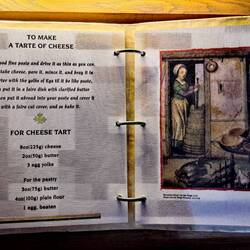 TO MAKE
A TARTE OF CHEESE
good fine paste and drive it as thin as you can.
take cheese, pare it, mince it, and bray it in
with the yolks of Egs til it be like paste,
put it in a faire dish with clarified butter
then put it abroad into your paste and cover it
with a faire cut cover, and so bake it
FOR CHEESE TART
8oz(225g) cheese
2oz(50g) butter
3 egg yolks
For the pastry
3oz(75g) butter
4oz(100g) plain flour
1 egg, beaten